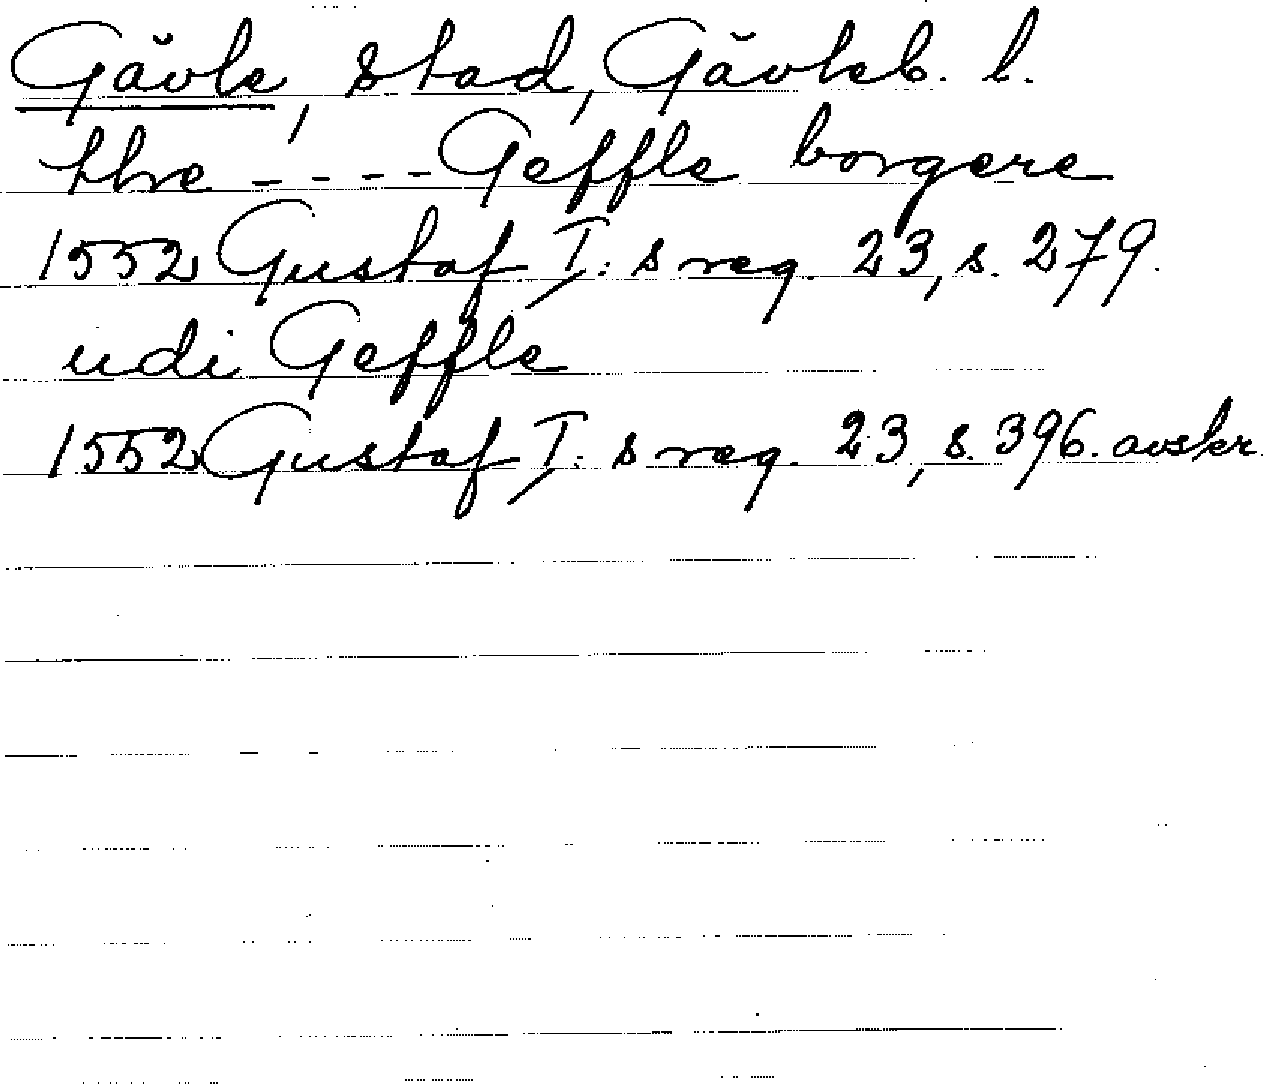 Gävle, stad, Gävleb. l.
thre - - - - Geffle borgere
1552 Gustaf I:s reg. 23, s. 279.
udi Geffle
1552 Gustaf I:s reg. 23, s. 396. avskr.